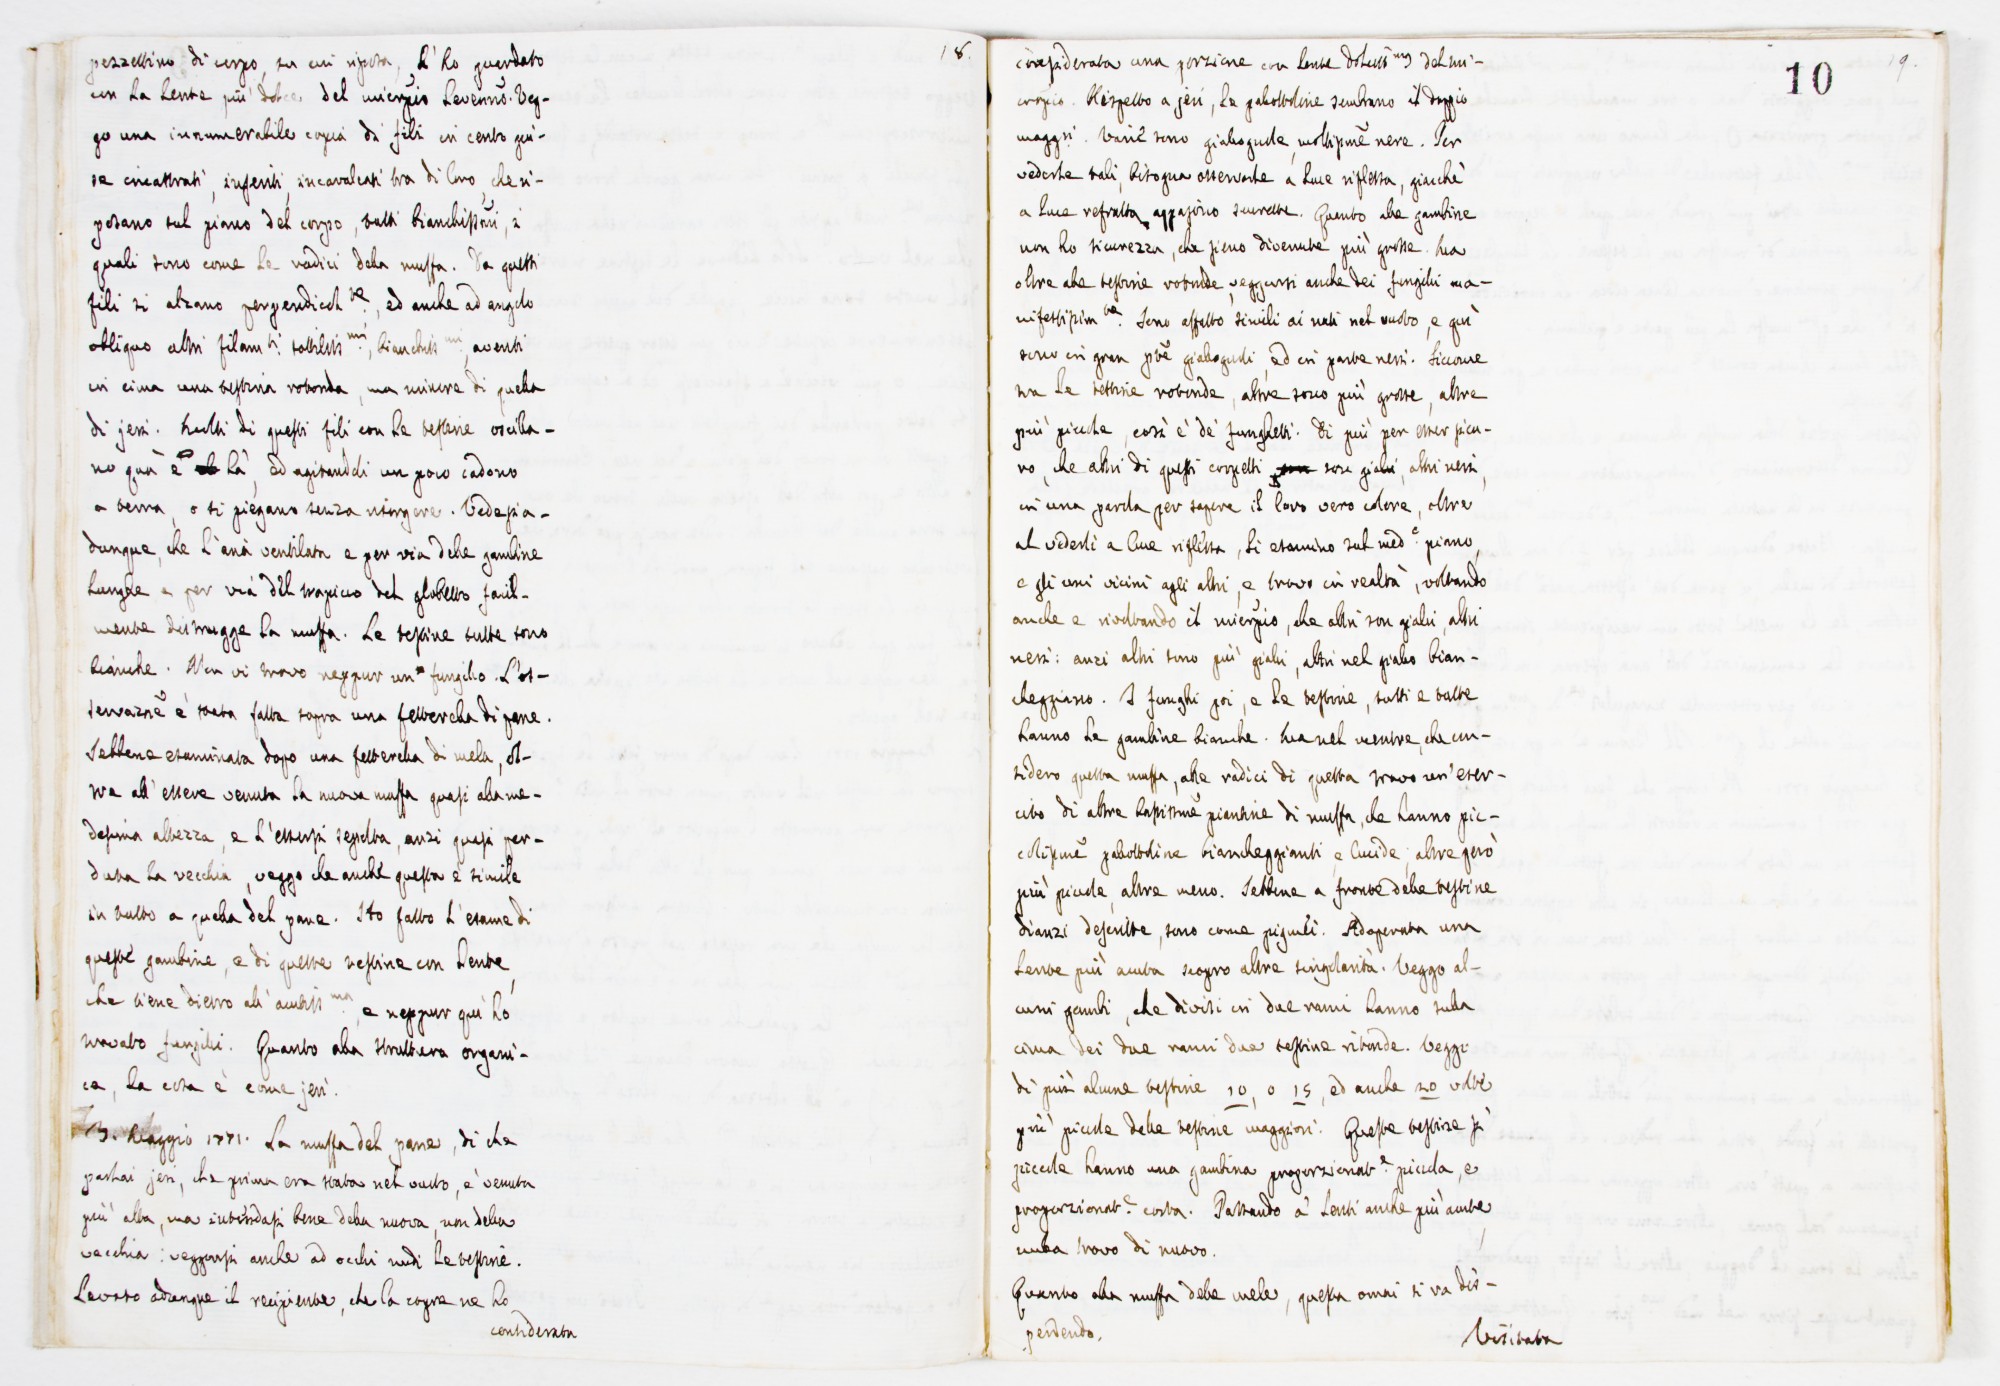 18.
pezzettino di corpo, su cui riposa, l'ho guardato
con la lente più dolce del micrpio Levennõ. Veg-
go una innumerabile copia di fili in cento gui-
se incattrati, inseriti, incavalcati tra di loro, che ri-
posano sul piano del corpo, tutti bianchissmi, i
quali sono come le radici della muffa. Da questi
fili si alzano perpendicolte, ed anche ad angolo
obliquo altri filamti sottilissmi, bianchissmi, aventi
in cima una testina rotonda, ma minore di quella
di jeri. Molti di questi fili con le testine oscilla-
no quà e là, ed agitandoli un poco cadono
a terra, o si piegano senza risorgere. Vedesi a-
dunque, che l'aria ventilata e per via delle gambine
lunghe e per via del trapicco del globetto facil-
mente distrugge la muffa. Le testine tutte sono
bianche. Non vi trovo neppur un fungillo. L'os-
servaznẽ è stata fatta sopra una fettercella di pane.
Sebbene esaminata dopo una fettercella di mela, ol-
tra all'essere venuta la nuova muffa quasi alla me-
desima altezza, e l'essersi sepolta, anzi quasi per-
duta la vecchia, veggo che anche questa è simile
in tutto a quella del pane. Ho fatto l'esame di
queste gambine, e di queste testine con lente,
che tiene dietro all'acutissma, e neppur quì ho
trovato fungilli. Quanto alla struttura organi-
ca, la cosa è come jeri.
3. Maggio 1771. La muffa del pane, di che
parlai jeri, che prima era stata nel vuoto, è venuta
più alta, ma intendasi bene della nuova, non della
vecchia: veggonsi anche ad occhi nudi le testine.
Levato adunque il recipiente, che la copre ne ho
considerata
19.
10
considerata una porzione con lente dolcissma del mi-
cropio. Rispetto a jeri, le pallottoline sembrano il doppio
maggri. Varie sono giallognole, moltissmẽ nere. Per
vederle tali, bisogna osservarle a luce riflessa, giacchè
a luce refratta appajono scurette. Quanto alle gambine
non ho sicurezza, che sieno divenute più grosse. Ma
oltre alle testine rotonde veggonsi anche dei fungilli ma-
nifestissimte. Sono affatto simili ai nati nel vuoto, e quì
sono in gran ptẽ giallognoli, ed in parte neri. Siccome
tra le testine rotonde, altre sono più grosse, altre
più picciole, così è de' funghetti. Di più per esser sicu-
ro, che altri di questi corpetti son gialli, altri neri,
in una parola per sapere il loro vero colore, oltre
al vederli a luce riflessa, li esamino sul mede piano,
e gli uni vicini agli altri, e trovo in realtà, voltando
anche e rivoltando il micrpio, che altri son gialli, altri
neri: anzi altri sono più gialli, altri nel giallo bian-
cheggiano. I funghi poi, e le testine, tutti e tutte
hanno le gambine bianche. Ma nel mentre, che con-
sidero questa muffa, alle radici di questa trovo un'eser-
cito di altre bassissmẽ piantine di muffa, che hanno pic-
colissmẽ pallottoline biancheggianti e lucide, altre però
più picciole, altre meno. Sebbene a fronte delle testine
dianzi descritte, sono come pigmei. Adoperata una
lente più acuta scopro altre singolarità. Veggo al-
cuni gambi, che divisi in due rami hanno sulla
cima dei due rami due testine ritonde. Veggo
di più alcune testine 10, o 15, ed anche 20 volte
più picciole delle testine maggiori. Queste testine sì
picciole hanno una gambina proporzionate picciola, e
proporzionate corta. Passando a lenti anche più acute,
nulla trovo di nuovo.
Quanto alla muffa delle mele, questa omai si va dis-
perdendo.
Visitata